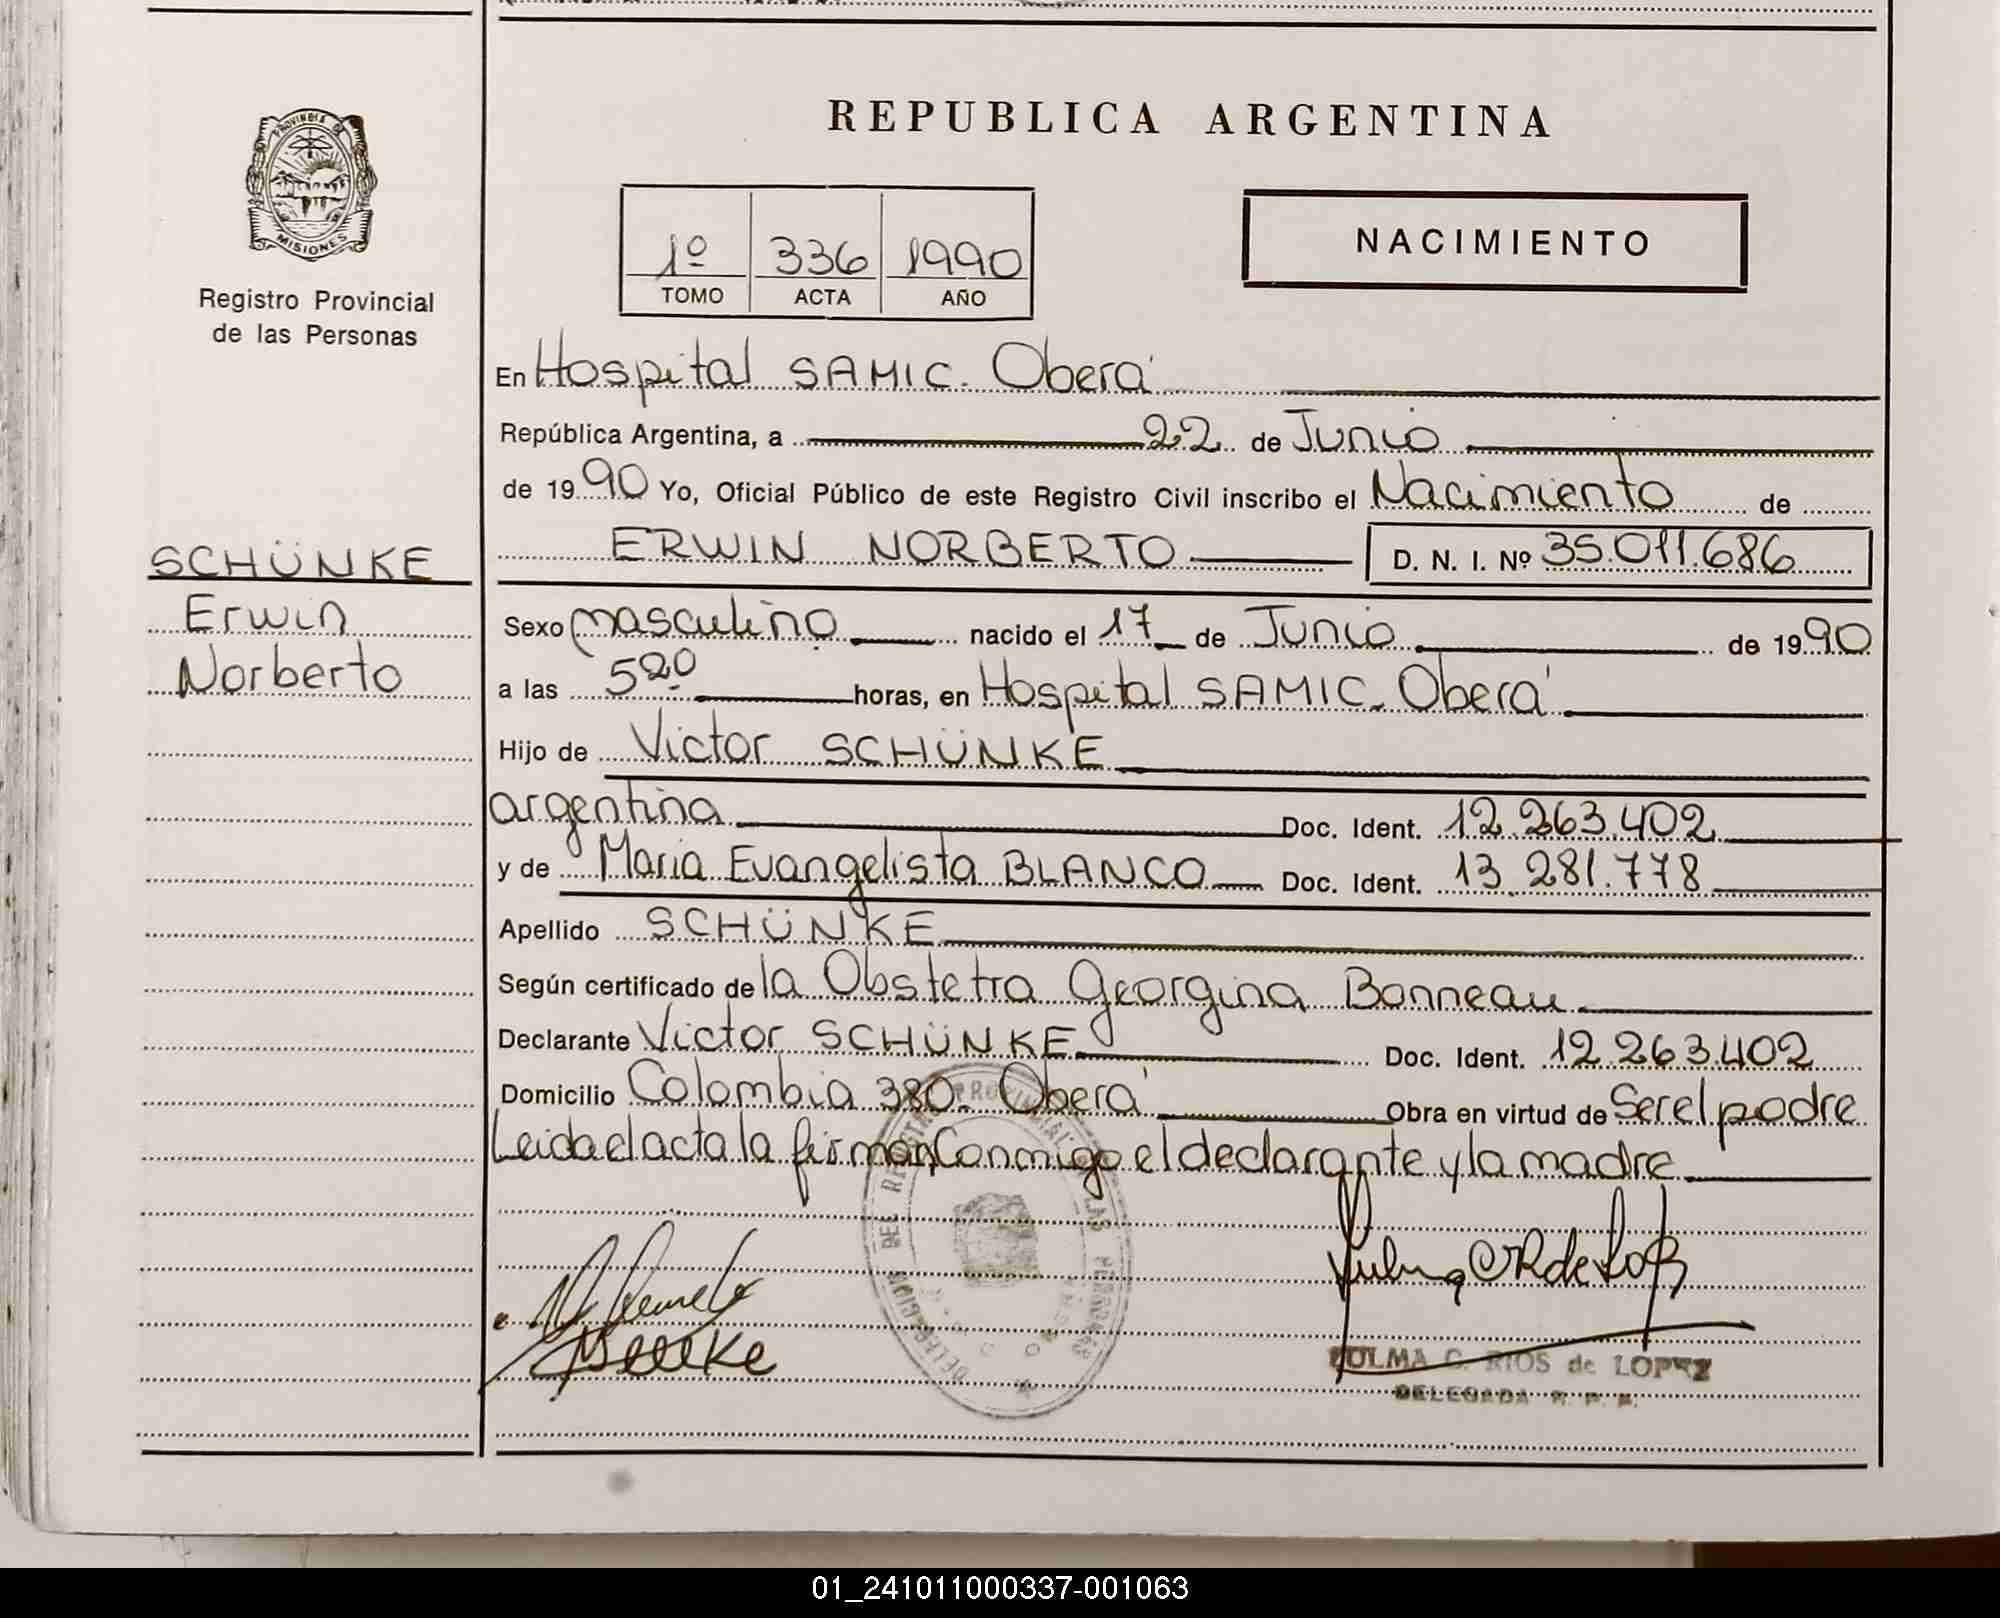 PROVINCIA DE
MISIONES
Registro Provincial
de las Personas
SCHÜNKE
Erwin
Norberto
REPUBLICA ARGENTINA
1º 336 1990
TOMO ACTA AÑO
NACIMIENTO
En Hospital SAMIC. Oberá
República Argentina, a 22 de Junio
de 1990 Yo, Oficial Público de este Registro Civil inscribo el Nacimiento de
ERWIN NORBERTO D. N. I. Nº 35.011.686
Sexo masculino nacido el 17 de Junio de 1990
a las 5 20 horas, en Hospital SAMIC. Oberá
Hijo de Victor SCHÜNKE
argentina Doc. Ident. 12.263.402
y de Maria Evangelista BLANCO Doc. Ident. 13.281.778
Apellido SCHÜNKE
Según certificado de la Obstetra Georgina Bonneau
Declarante Victor SCHÜNKE Doc. Ident. 12.263.402
Domicilio Colombia 380. Oberá Obra en virtud de Ser el padre
Leida el acta la firman Conmigo el declarante y la madre
C. RIOS de LOPEZ
DELEGADA R. P. P.
01_241011000337-001063